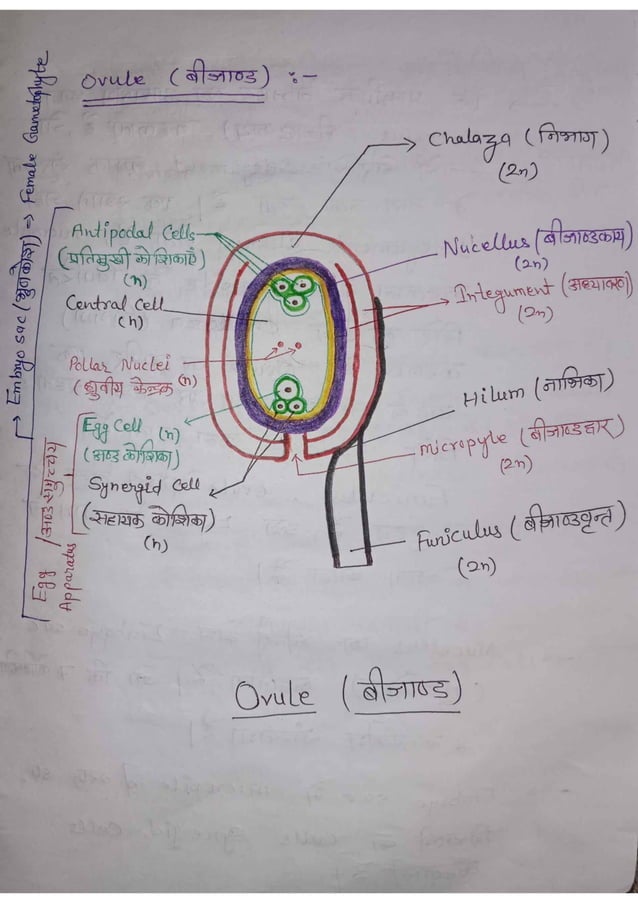 Ovule (बीजाण्ड) :-
Embryo sac (भ्रूणकोश) ⇒ Female Gametophyte
Chalaza (निभाग)
(2n)
Antipodal Cells
(प्रतिमुखी कोशिकाएँ)
(n)
Nucellus (बीजाण्डकाय)
(2n)
Integument (अध्यावरण)
(2n)
Central Cell
(n)
Pollar Nuclei
(ध्रुवीय केन्द्रक (n)
Hilum (नाभिका)
Egg Cell (n)
(अण्ड कोशिका)
micropyle (बीजाण्डद्वार)
(2n)
Synergid Cell
(सहायक कोशिका)
(n)
Egg Apparatus
(अण्ड समुच्चय
Funiculus (बीजाण्डवृन्त)
(2n)
Ovule (बीजाण्ड)